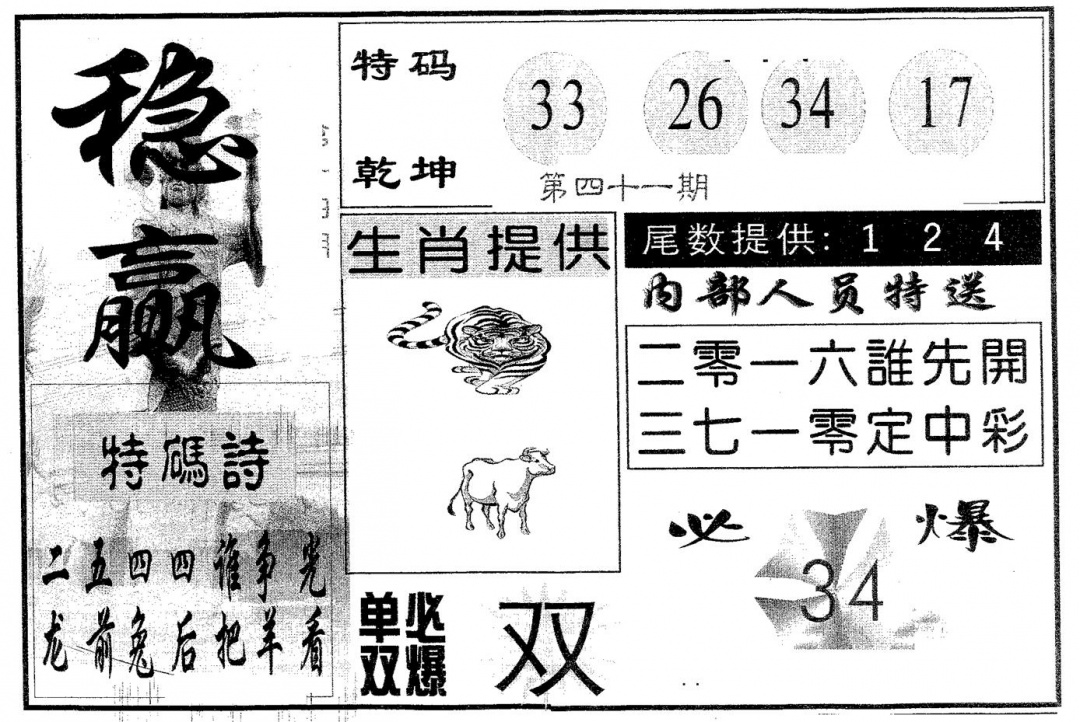 稳赢
特碼詩
二五四四谁争光
龙前兔后把羊看
特码
乾坤
33 26 34 17
第四十一期
生肖提供
尾数提供: 1 2 4
内部人员特送
二零一六誰先開
三七一零定中彩
必爆
34
单双
必爆
双